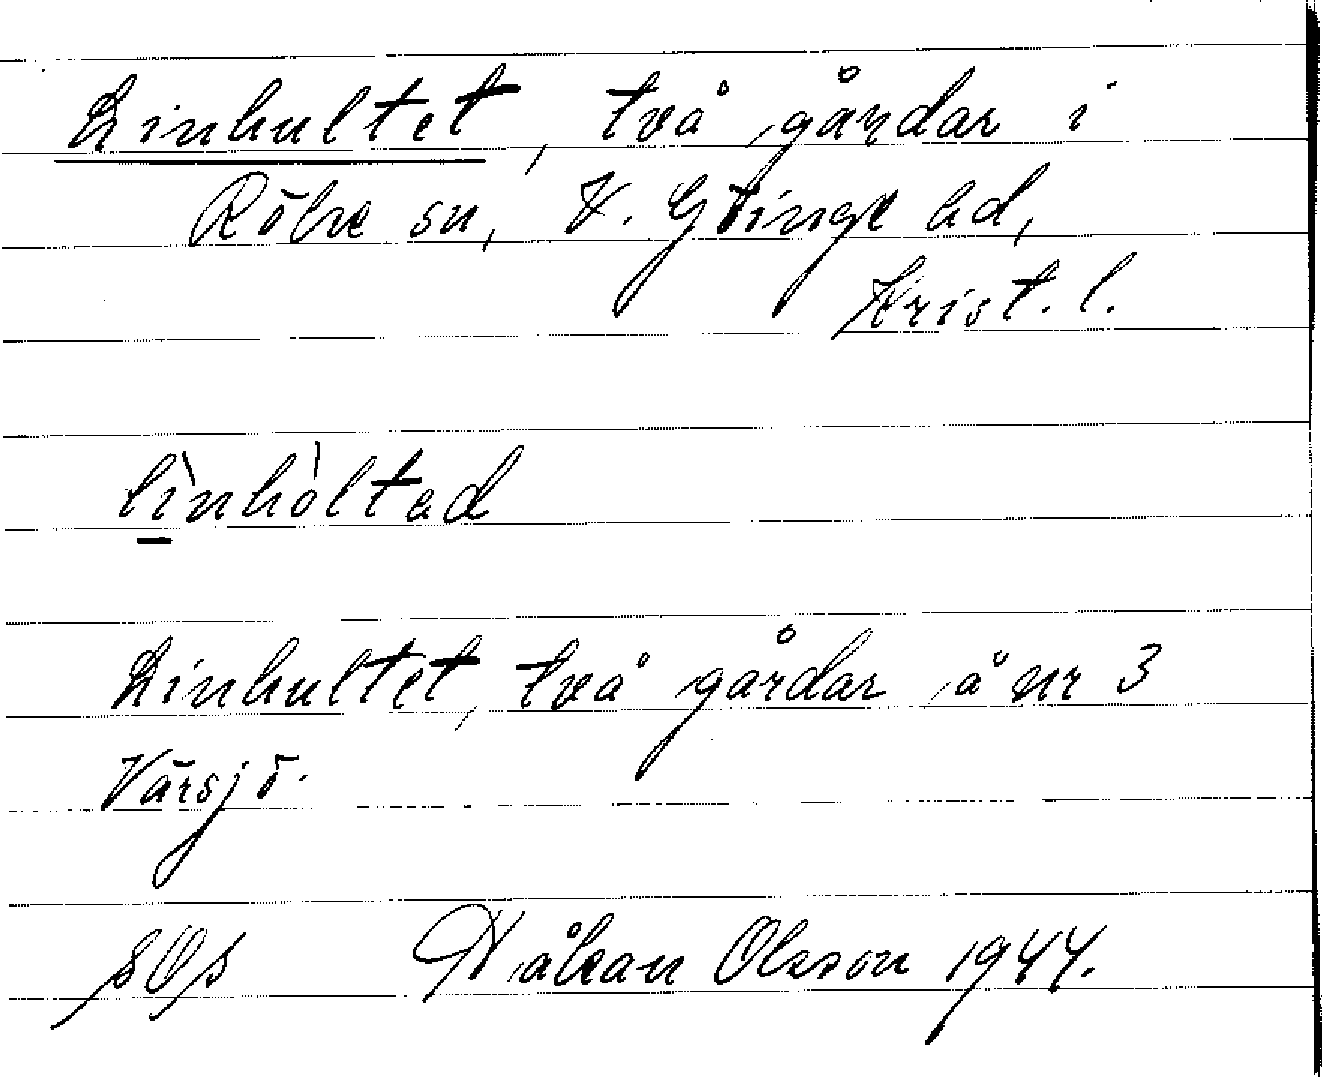 Linhultet, två gårdar i
Röke sn, V. Göinge hd,
Krist. l.
lìnhòltad
Linhultet, två gårdar å nr 3
Värsjö.
Håkan Olsson 1944.